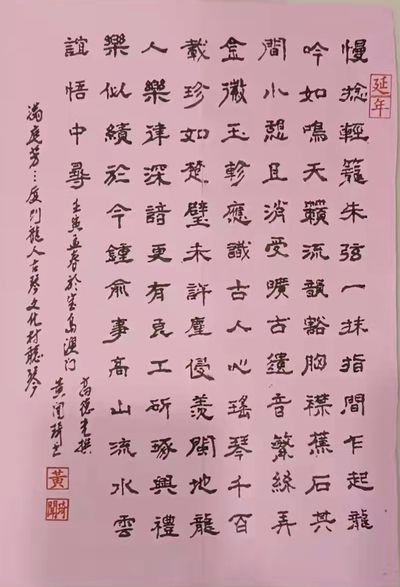 延年
慢捻輕籠朱弦一抹指間乍起龍
吟如鳴天籟流韻豁胸襟蕉石其
間小憩且消受曠古遺音繁絲弄
金徽玉軫應識古人心瑤琴千百
載珍如楚璧未許塵侵羡閩地龍
人樂律深諳更有良工斫琢興禮
樂似續於今鍾俞事高山流水雲
誼悟中尋
壬寅孟春於半島澳門 高德撰
滿庭芳：龍人古琴文化村聽琴
黃
黃